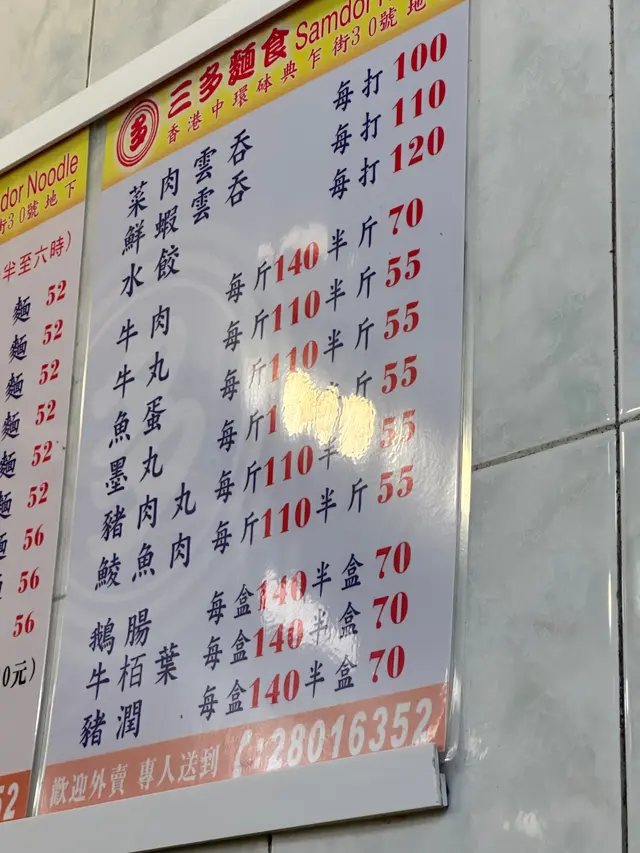 dor Noodle
街30號地下
半至六時)
麵 52
麵 52
麵 52
麵 52
麵 52
麵 52
麵 56
麵 56
56
0元)
52
多
三多麵食 Samdor
香港中環砵典乍街30號地
菜肉雲吞 每打 100
鮮蝦雲吞 每打 110
水餃 每打 120
牛肉 每斤140 半斤 70
牛丸 每斤110 半斤 55
魚蛋 每斤110 半斤 55
墨丸 每斤1 斤 55
豬肉丸 每斤110 半 55
鯪魚肉 每斤110 半斤 55
鵝腸 每盒140 半盒 70
牛栢葉 每盒140 半盒 70
豬潤 每盒140 半盒 70
歡迎外賣 專人送到 28016352